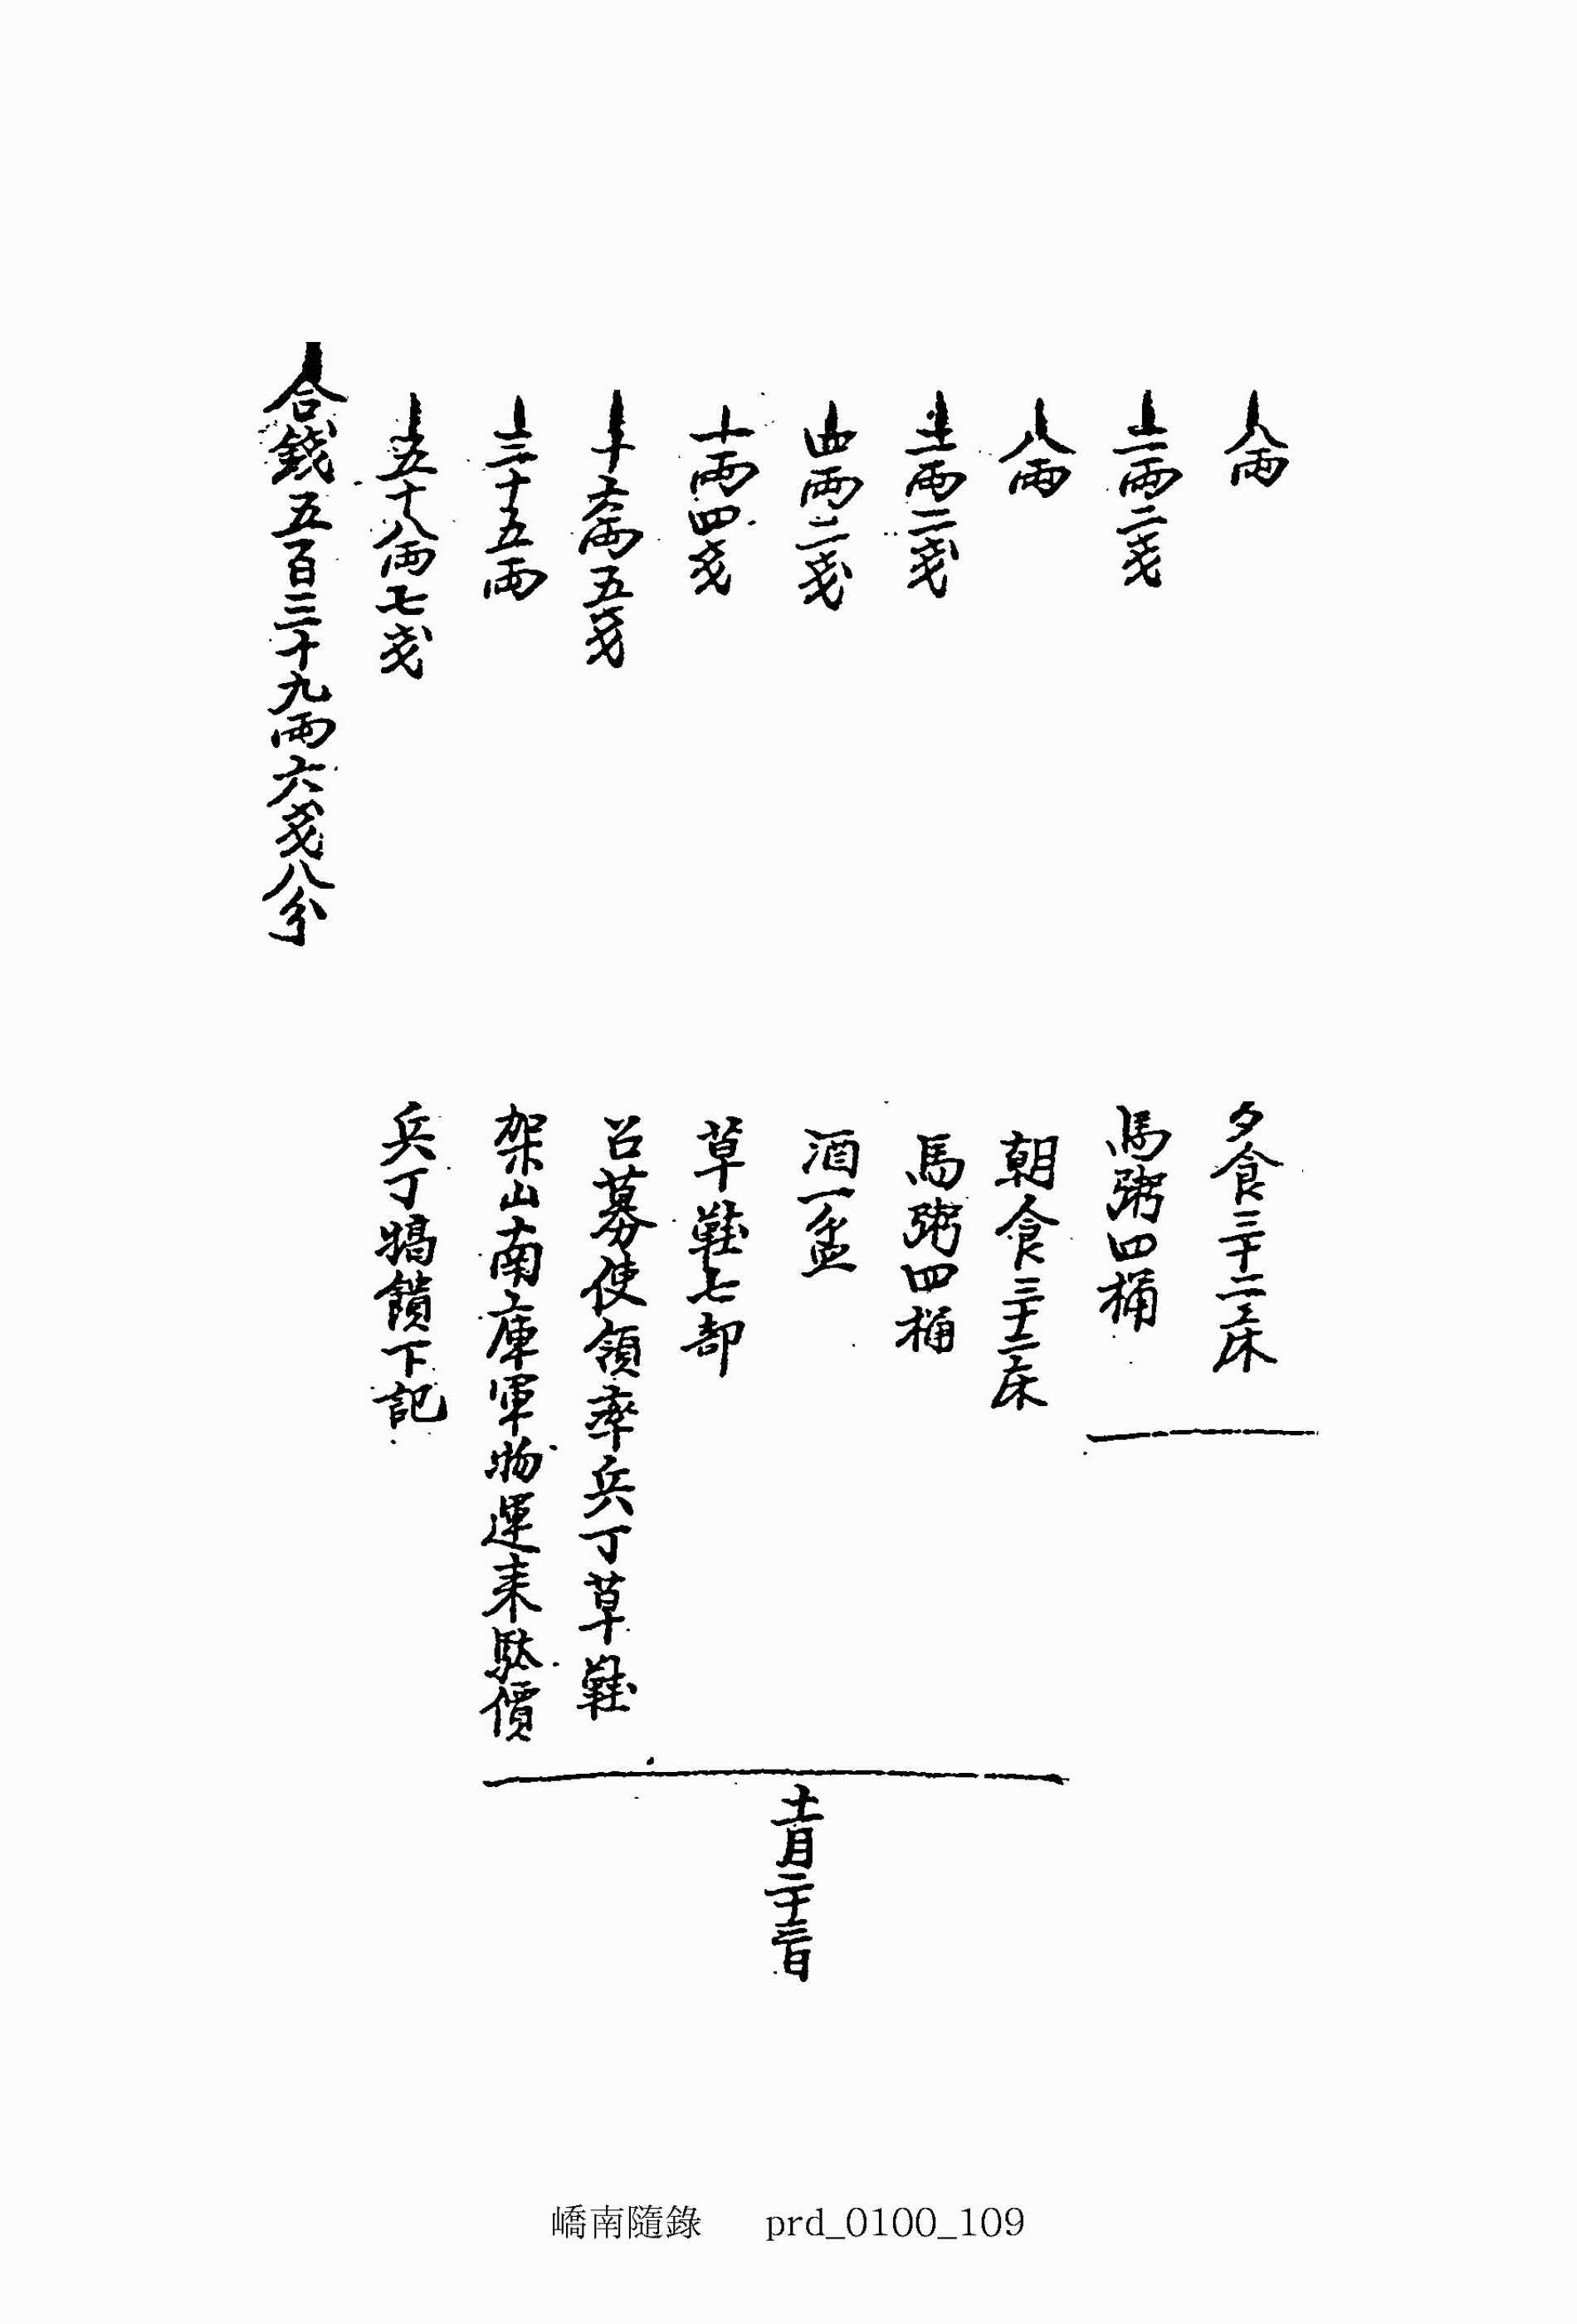 八兩 夕食三十二床
三兩二戔 馬粥四桶
八兩 朝食三十二床
三兩二戔 馬粥四桶
四兩二戔 酒一盆
一兩四戔 草鞋七部
十六兩五戔 召募使領率兵丁草鞋
三十五兩 架山南庫軍物運来駄價
十一月二十三日
五十八兩七戔 兵丁犒饋下記
合錢五百三十九兩六戔八分
嶠南隨錄 prd_0100_109